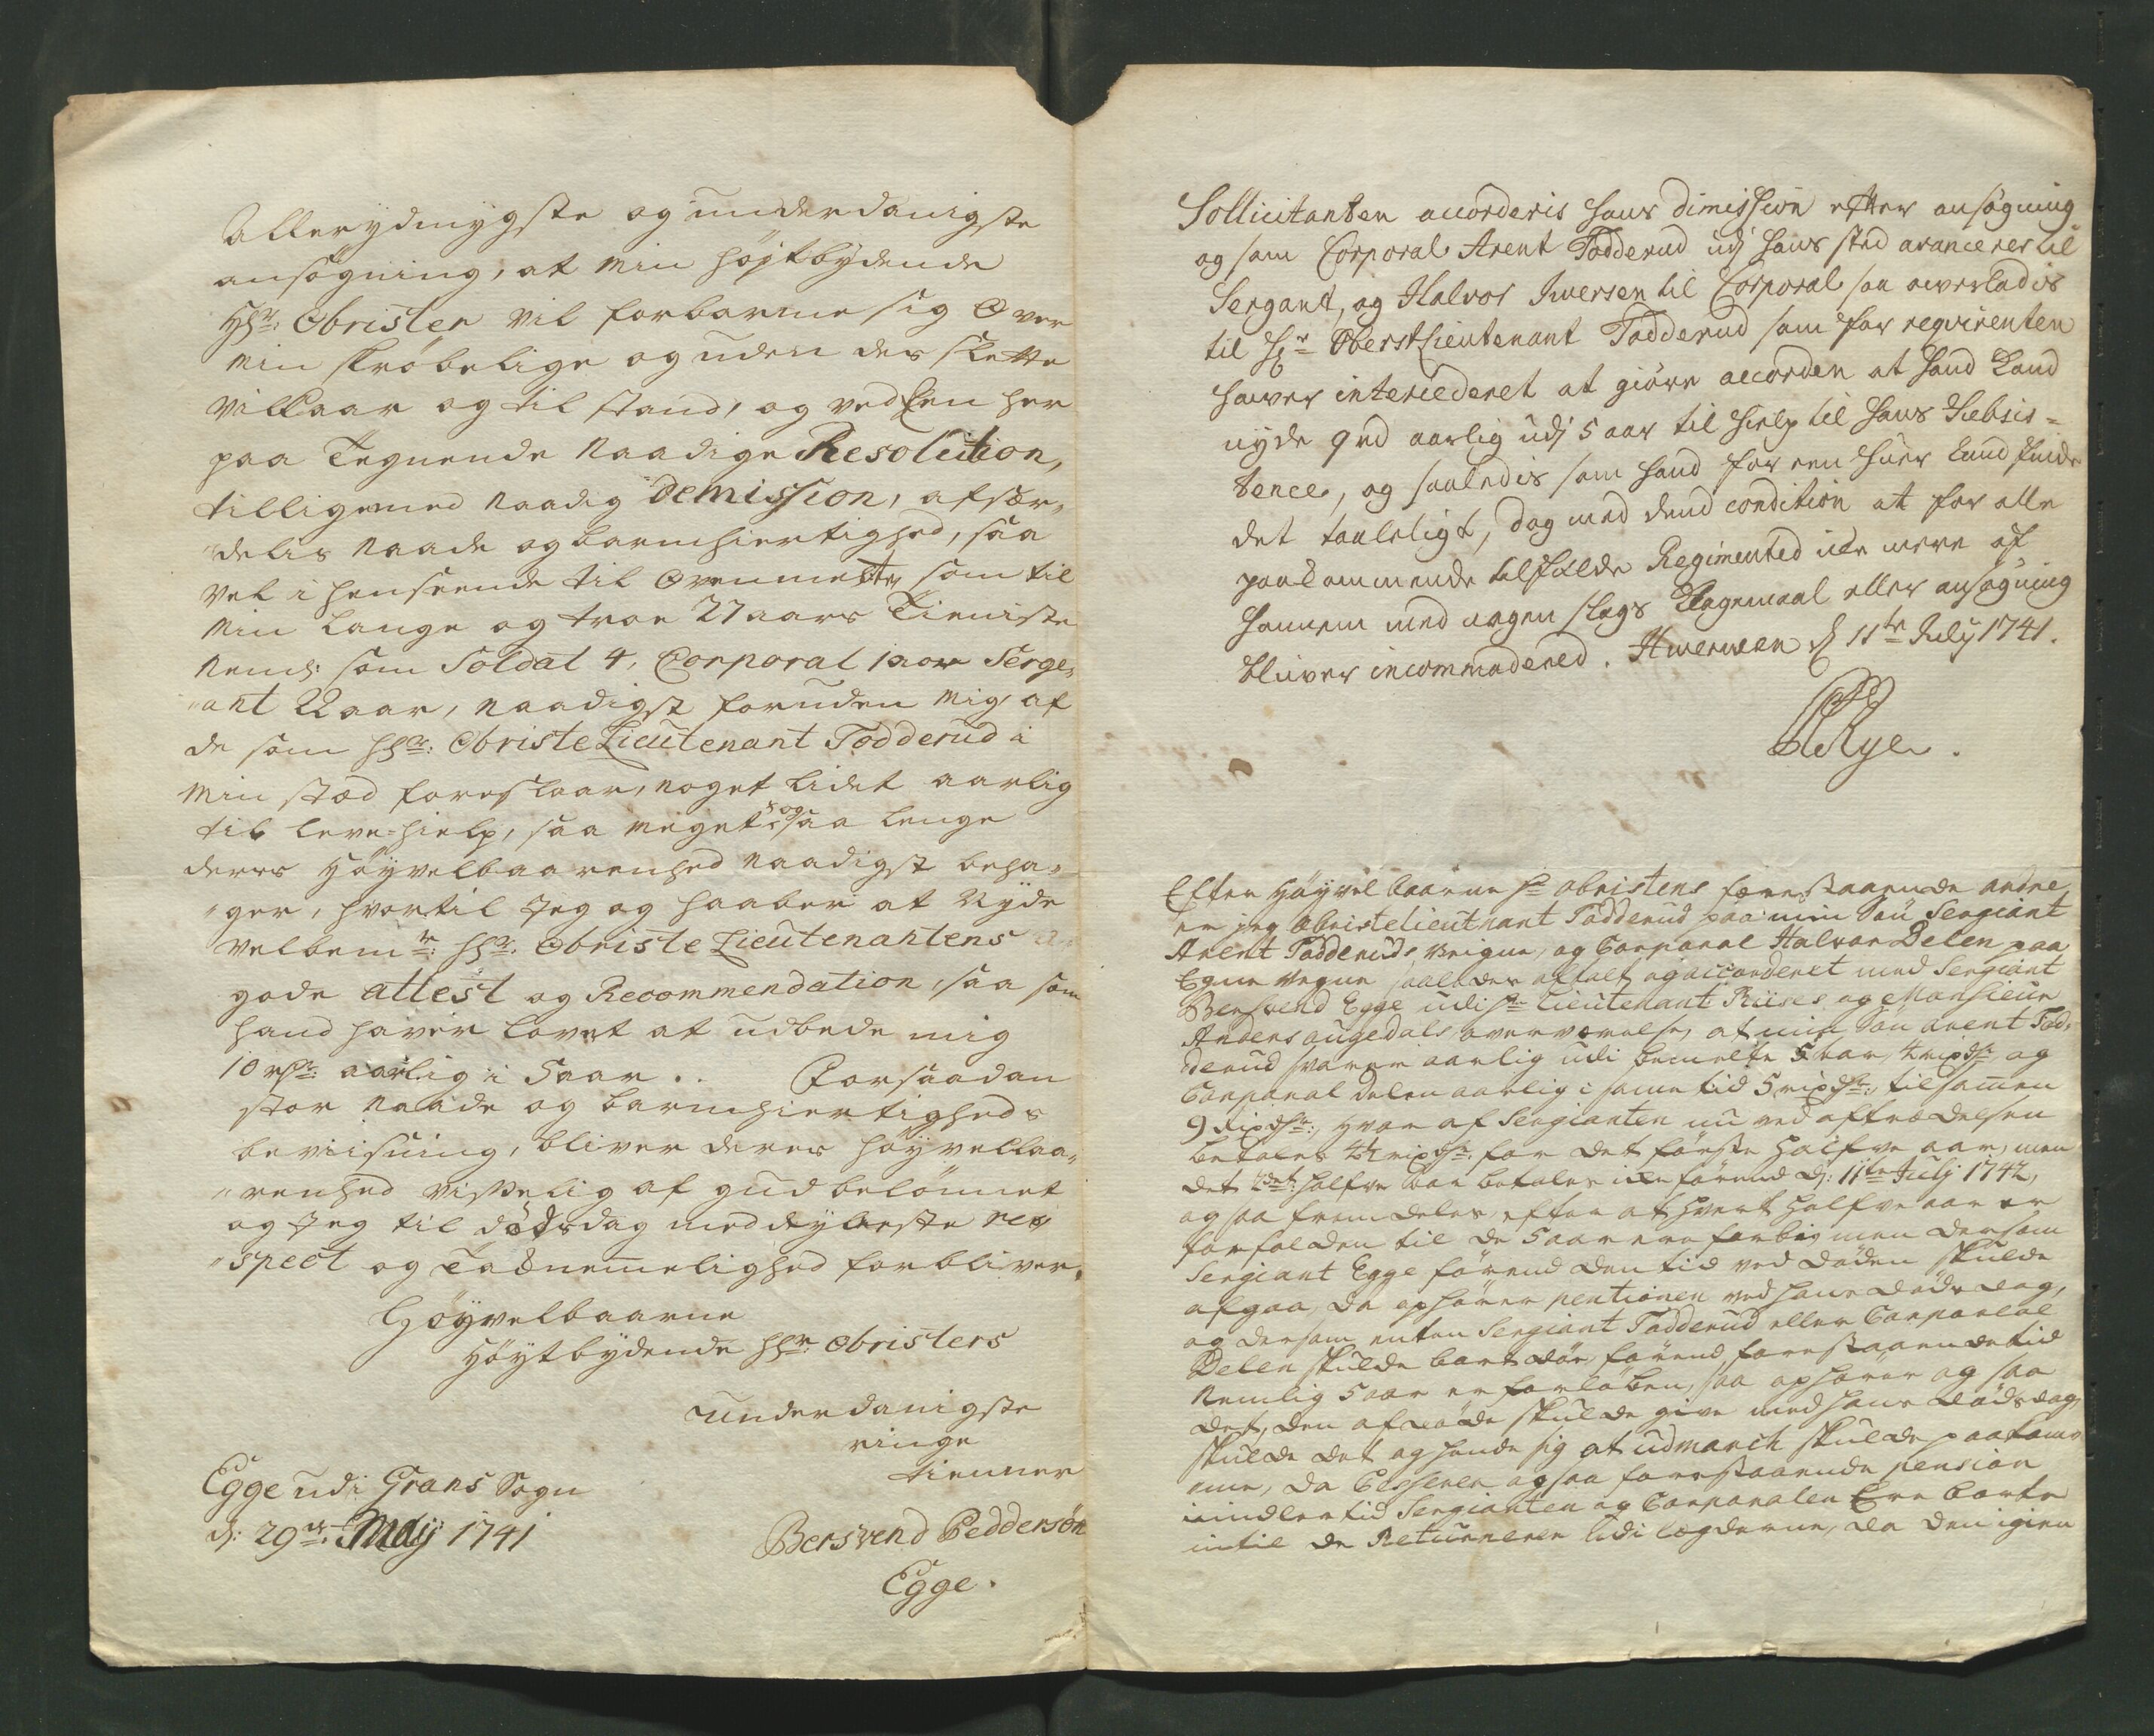 Allerydmygste og underdanigste
ansögning, at min höjtbydende
Hr: Obristen vil forbarme sig Over
min skröbelige og uden des slette
vilkaar og tilstand, og ved En her
paa Tegnende naadige Resolution,
tilligemed naadig Demission, afsær„
„delis naade og barmhiertighed, saa
vel i henseende til Ovenmelte som til
min lange og troe 27 aars Tieniste
neml: som Soldat 4, Corporal 1 aar Serge„
„ant 22 aar, naadigst foruden mig af
de som Hr: Obriste Lieutenant Todderud i
min stæd foreslaar, noget lidet aarlig
til leve-hielp, saa meget og saa lenge
deres Höyvelbaarenhed naadigst beha„
„ger, hvortil Jeg og haaber at nyde
velbemte: Hr: Obriste Lieutenantens
gode attest og Recommendation, saa som
hand haver lovet at udbede mig
10 rdr: aarlig i 5 aar.. For saadan
stor naade og barmhiertigheds
beviisning, bliver deres höyvelbaa„
„renhed visselig af gud belönnet
og Jeg til dödsdag med dybeste re„
„spect og Tacknemmelighed forbliver.
Höyvelbaarne
Höytbydende Hr: Obristers
underdanigste
ringe
tienner
Egge udi Grans Sogn
d: 29de May 1741
Bersvend Peddersön
Egge.
Sollicitanten accorderis hans dimission efter ansögning
og som Corporal Arent Todderud udj hans sted avancerer til
Sergant, og Halvor Iwersen til Corporal saa overladis
til Hr Oberst Lieutenant Todderud som for reqvirenten
hawer intercederet at giöre accorden at hand kand
nyde 9 rd aarlig udj 5 aar til hielp til hans Subsis=
tence, og saaledis som hand for een huer kand finde
det taaleligt, dog med dend condition at for alle
paakommende tilfælde Regimented icke mere af
hannem med nogen slags Klagemaal eller ansögning
bliver incommodered. Hwerween d 11te July 1741.
Rye.
Efter Höyvelbaarne Hr Obristens forestaaende ordre,
er jeg Obristelieutnant Todderud paa min Sön Sergiant
Arent Todderuds Veigne, og Corporal Halvor Delen paa
Egne vegne saaledes aftalt og accorderet med Sergiant
Bersvend Egge udi Hr Lieutenant Riises og Monsieur
Anders augedals overværelse, at min Sön arent Tod„
derud svarer aarlig udi bemelte 5 aar, 4 rixdr og
Corporal Delen aarlig i same tid 5 rixdr:, tilsamen
9 Rixdr:, hvor af Sergianten nu ved aftrædelsen
betales 4½ rixdr: for det förste halfve aar, men
det 2det: halfve aar betales icke förend d: 11te July 1742,
og saa fremdeles efter at hvert halfve aar er
forfalden til de 5 aar ere forbig men dersom
Sergiant Egge förend den tid ved döden skulde
afgaa, da ophörer pentionen ved hans döds dag,
og dersom enten Sergiant Todderud eller Corporal
Delen skulde bort döe, förend forestaaende tid
Nemlig 5 aar er forlöben, saa ophörer og saa
det, den afdöde skulde give med hans dödsdag,
skulde det og hende sig at udmarch skulde paakom„
me, da Cesserer ogsaa forestaaende pension
imidlertid Sergianten og Corporalen Ere borte
intil de Returnerer udi lægderne, da den igien